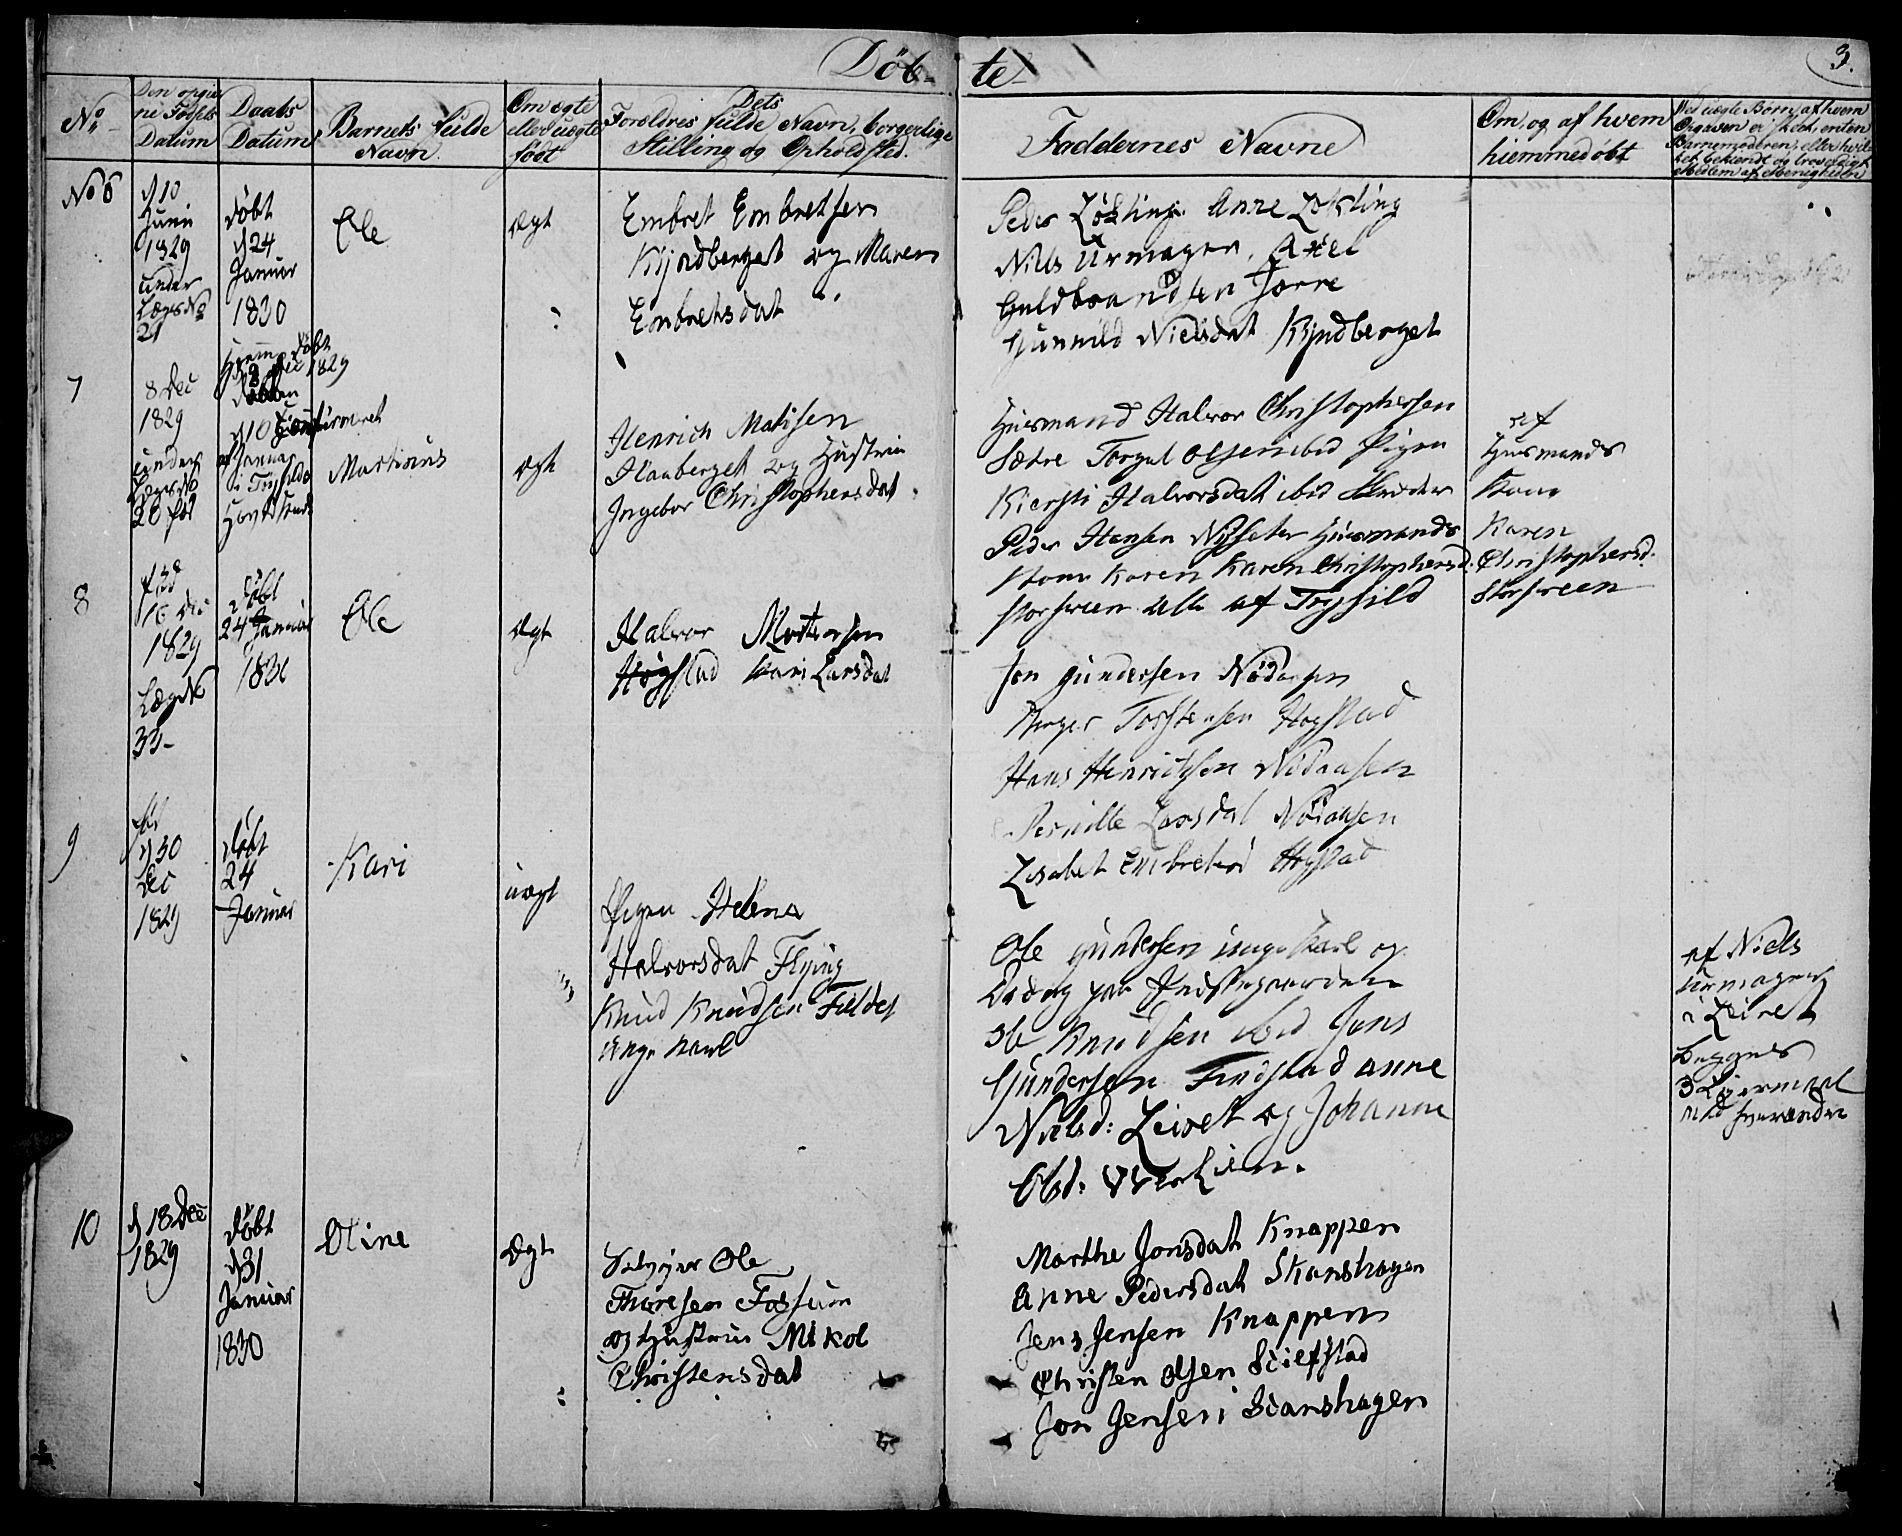 Döb-
te
3.
No
Den opgivne Födsels Datum
Daabs Datum
Barnets fulde Navn.
Om ægte eller uægte födt
Dets Forældres fulde Navn, borgerlige Stilling og Opholdsted.
Faddernes Navne
Om, og af hvem hiemmedöbt
Ved uægte Börn, af hvem Opgaven er skeet, enten Barnemoderen, eller hvilket bekiendt og troværdigt Medlem af Menigheden
No 6
d 10
Juni
1829
under
Lægs No
21
döbt
d 24
Januar
1830
Ole
Ægt
Embret Embretsen
Kyndberget og Maren
Embretsdat
Peder Lökting Anne Lökting
Niels Urmager, Axel
Guldbrandsen Jorre
Gunnild Nielsdat Kyndberget
7
8 Dec
1829
under
Lægs No
20 föd
Hjemmedöbt
8 Dec 1829
d 10
Januar
i Trysild
Hovedkirke
Martinus
Ægt
Henrich Matisen
Haaberget og Hustrue
Ingebor Christophersdat
Huusmand Halvor Christophersen
Sætre Torgul Olsen ibid Pigen
Kiersti Halvorsdat ibid
Peder Hansen Nysæter Huusmands
Kone Karen Karen Christophersd.
Storsveen Alle af Trysild
af
Huusmands
Kone
Karen
Christophersd.
Storsveen
8
föd
16 Dec
1829
Lægs No
33-
döbt
24 Januar
1830
Ole
Ægt
Halvor Mortensen
Högstad Kari Larsdat
Jon Gundersen Nödaasen
Torstensen Hogstad
Hans Henrichsen Nödaasen
Pernille Larsdat Nödaasen
Lisabet Embretsd Hogstad
9
föd
d 30
Dec
1829
döbt
24
Januar
Kari
uægt
Pigen Helena
Halvorsdat Flying
Knud Knudsen Feldet
Unge Karl
Ole Gundersen unge Karl og
Ole Knudsen ibid Jens
Gundersen Findstad Anne
Nielsd: Leiret og Johanne
Olsd:
af Niels
Urmager
i Leiret
Begges
3 Leiermaal
med hverandre
10
d 18 Dec
1829
döbt
d 31
Januar
1830
Oline
Ægt
Selveier Ole
Thoresen Fossum
og Hustrue Mikol
Christensdat
Marthe Jonsdat Knappen
Anne Pedersdat Skanshagen
Jens Jensen Knappen
Christen Olsen Sciefstad
Jon Jensen Scanshagen